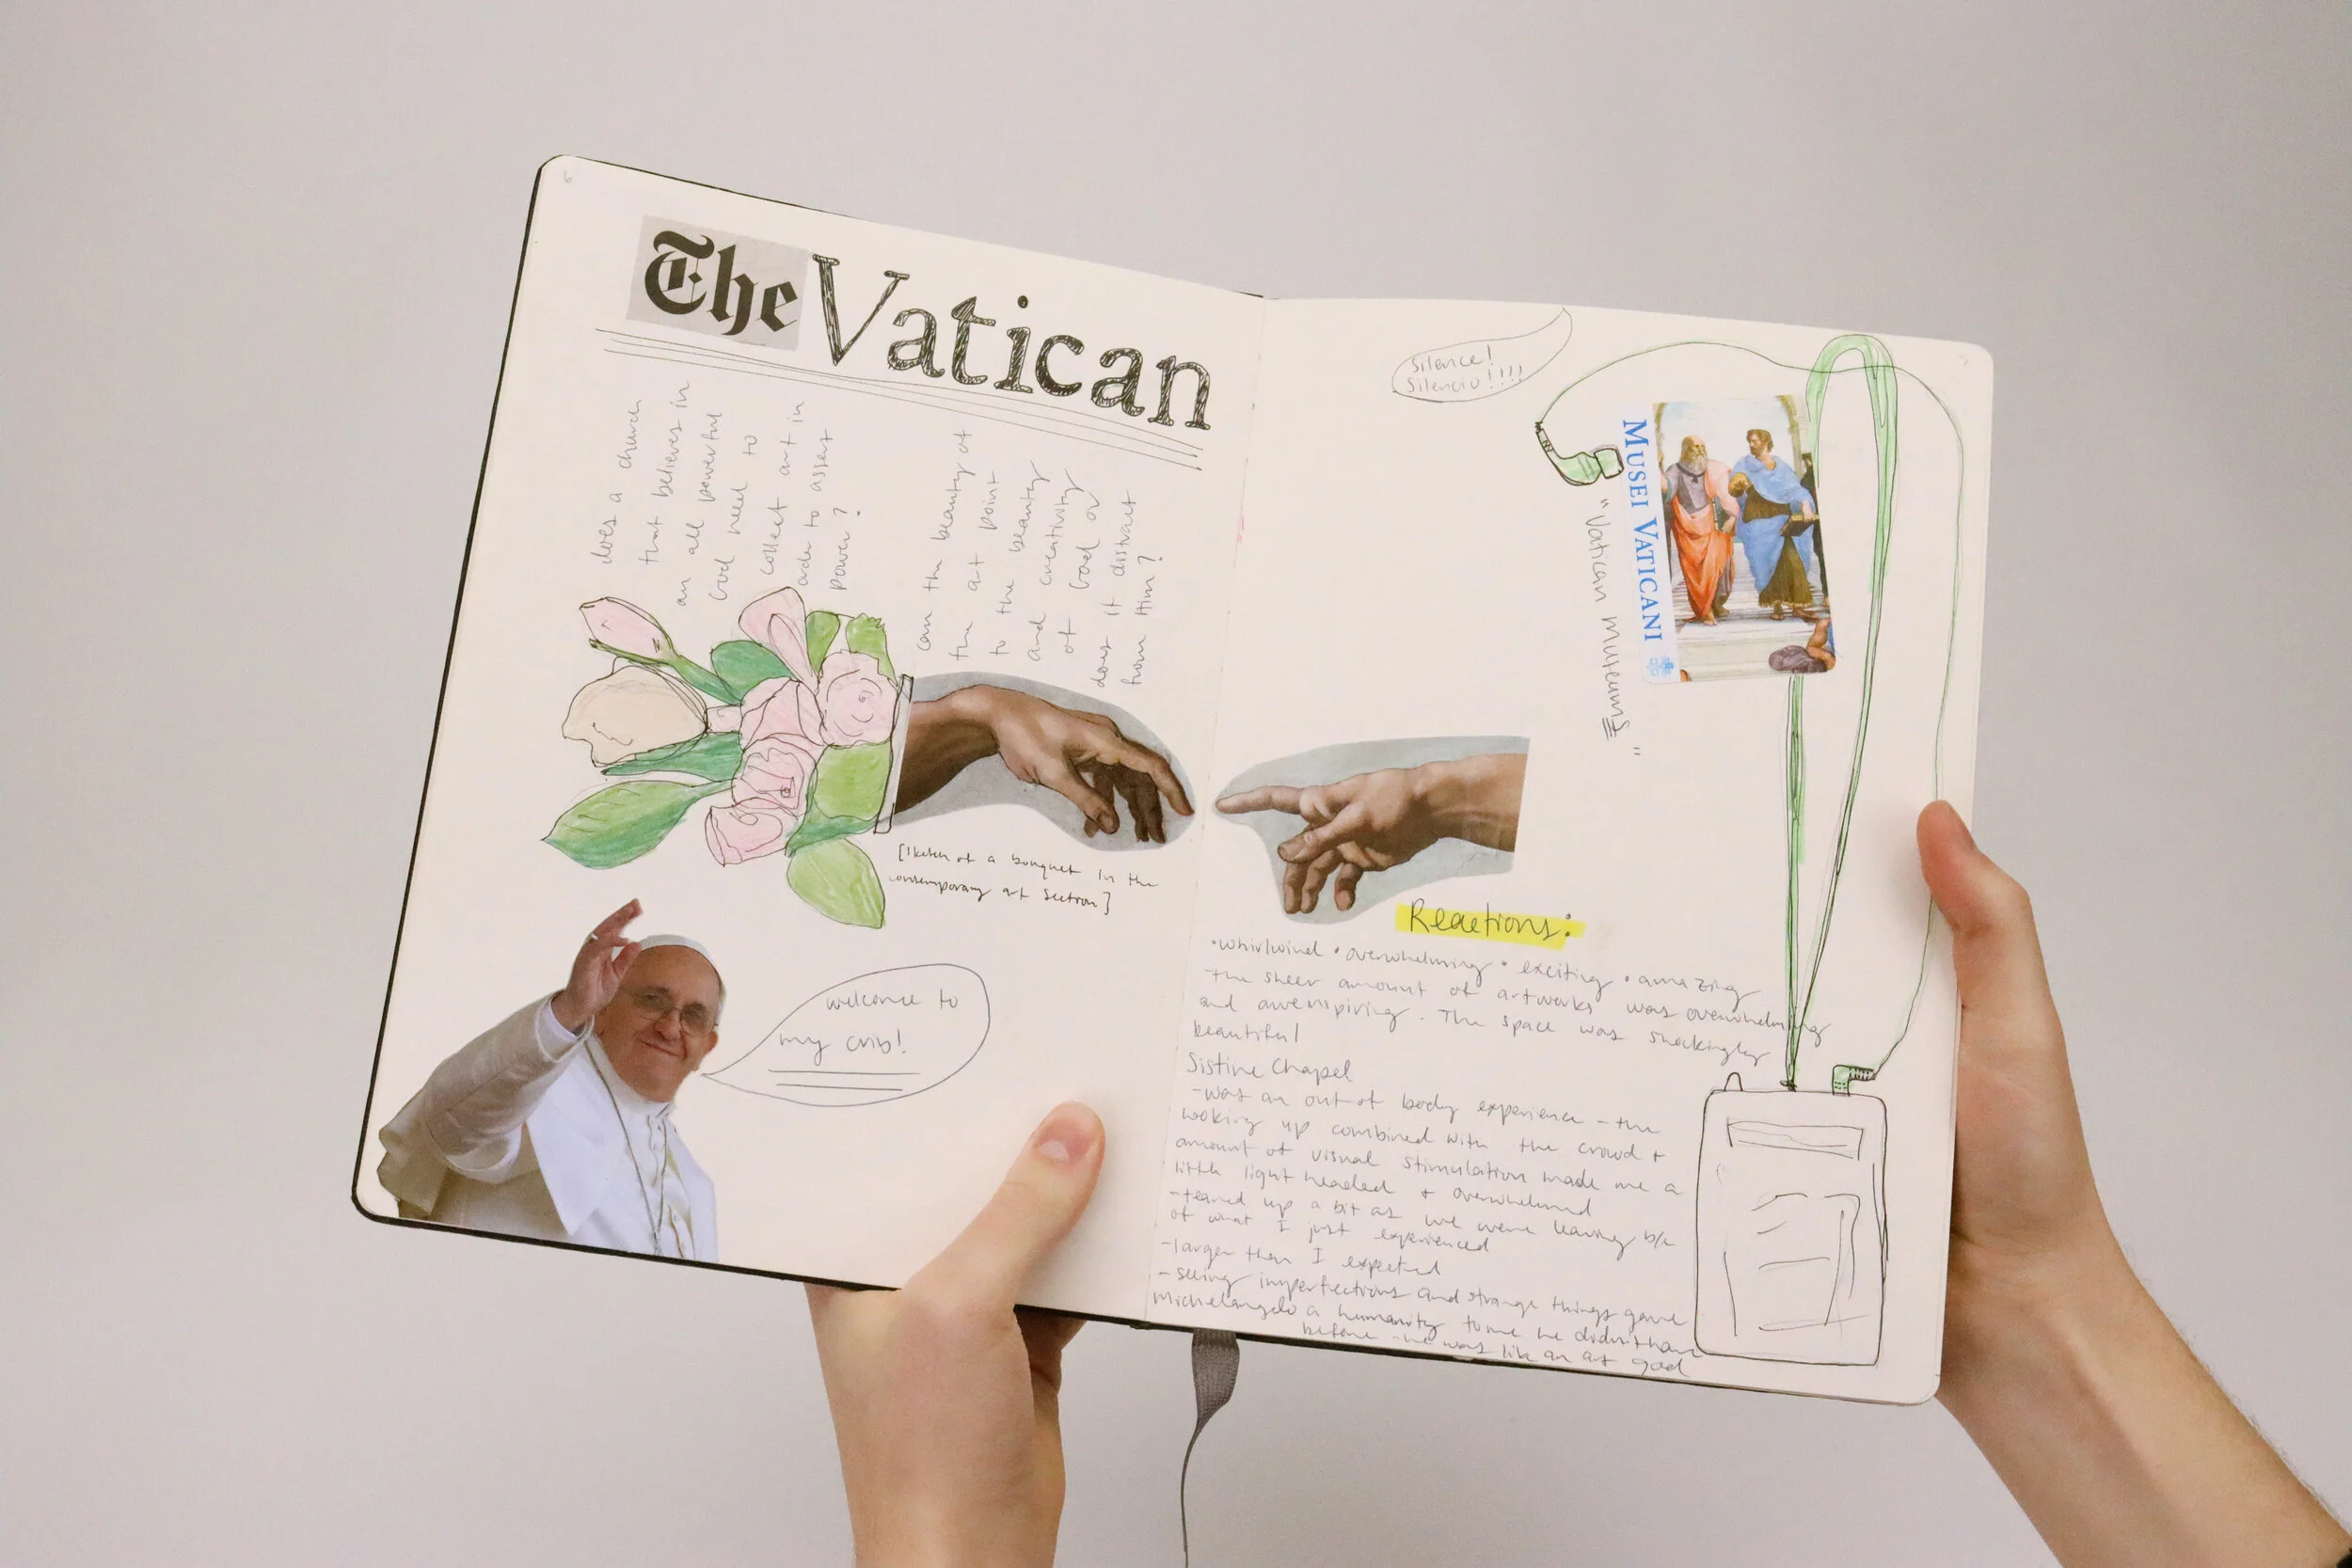 6
The Vatican
does a church
that believes in
an all powerful
God need to
collect art in
order to assert
power?
can the beauty of
the art point
to the beauty
and creativity
of God or
does it distract
from Him?
[sketch of a bouquet in the
contemporary art section]
welcome to
my crib!
7
Silence!
Silencio!!!!
MUSEI VATICANI
"Vatican Museums"
Reactions:
•whirlwind •overwhelming • exciting • amazing
the sheer amount of artworks was overwhelming
and awenspiring. The space was shockingly
beautiful
Sistine Chapel
-was an out of body experience - the
looking up combined with the crowd +
amount of visual stimulation made me a
little light headed + overwhelmed
-teared up a bit as we were leaving b/c
of what I just experienced
-larger then I expected
-seeing imperfections and strange things gave
Michelangelo a humanity to me he didn't have
before - he was like an art god